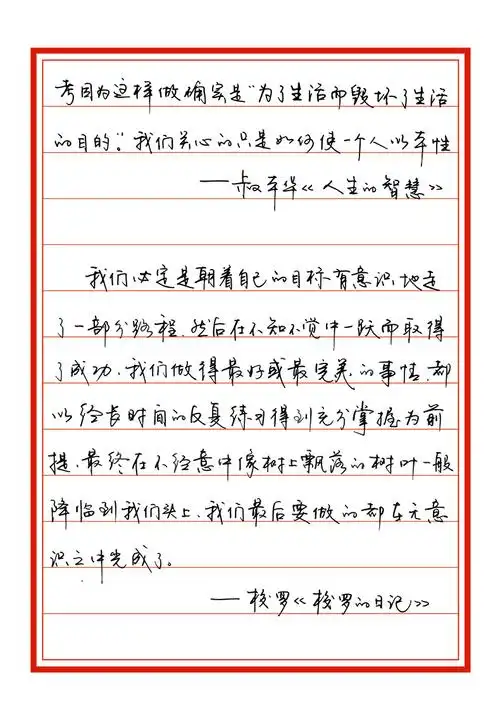 考因为这样做确实是“为了生活而毁坏了生活
的目的”。我们关心的只是如何使一个人以本性
——叔本华《人生的智慧》
我们必定是朝着自己的目标有意识地走
了一部分路程，然后在不知不觉中一跃而取得
了成功，我们做得最好或最完美的事情，都
以经长时间的反复练习得到充分掌握为前
提，最终在不经意中像树上飘落的树叶一般
降临到我们头上，我们最后要做的都在无意
识之中完成了。
——梭罗《梭罗的日记》